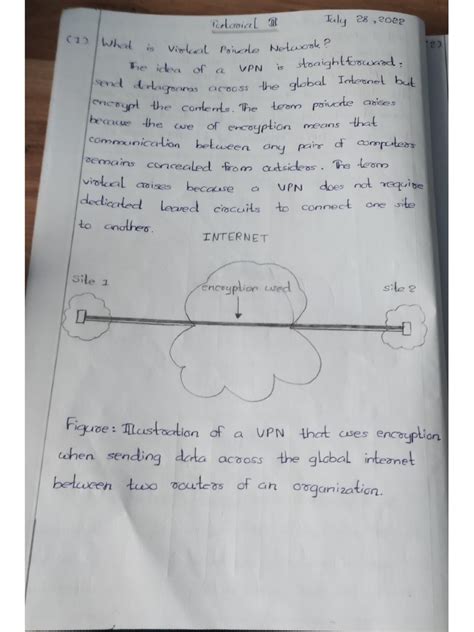 Tutorial II
July 28, 2022
(1) What is Virtual Private Network?
The idea of a VPN is straightforward:
send datagrams across the global Internet but
encrypt the contents. The term private arises
because the use of encryption means that
communication between any pair of computers
remains concealed from outsiders. The term
virtual arises because a VPN does not require
dedicated leased circuits to connect one site
to another.
INTERNET
Site 1
encryption used
site 2
Figure: Illustration of a VPN that uses encryption
when sending data across the global internet
between two routers of an organization.